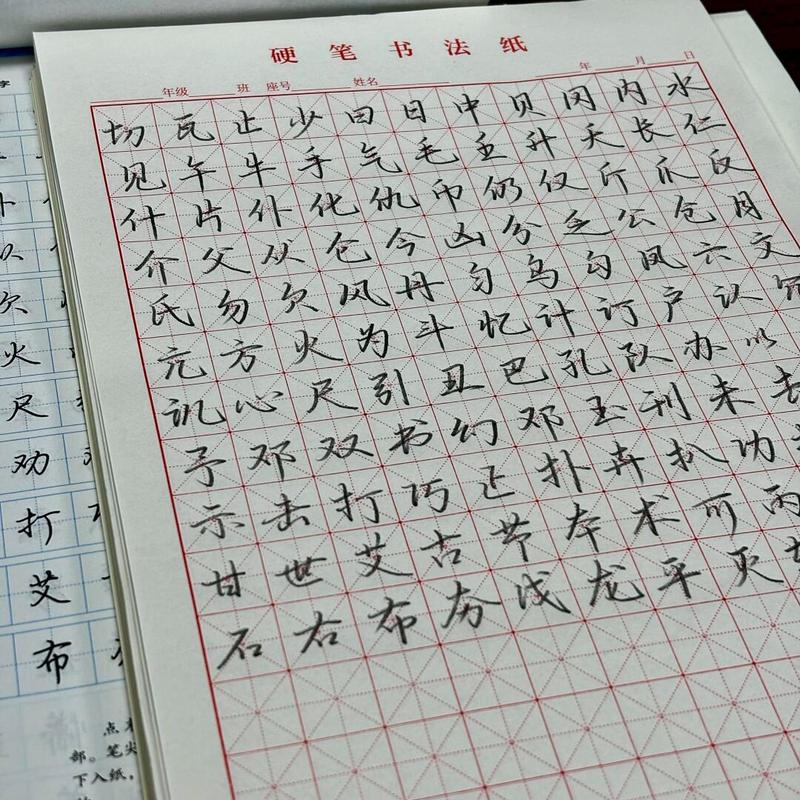 硬笔书法纸
年级 班 座号 姓名 年 月 日
切瓦止少曰日中贝冈内水
见午牛手气毛壬升夭长仁
什片仆化仇币仍仅斤爪反
介父从仑今凶分乏公仓月
氏勿欠风丹匀乌勾凤六文
亢方火为斗忆计订户认冗
讥心尺引丑巴孔队办以
予邓双书幻邓玉刊未去
示击打巧正扑卉扒功
甘世艾古节本术可丙
石右布夯戊龙平灭
字
火
尺
劝
打
艾
布
点
部。笔尖
下入纸，